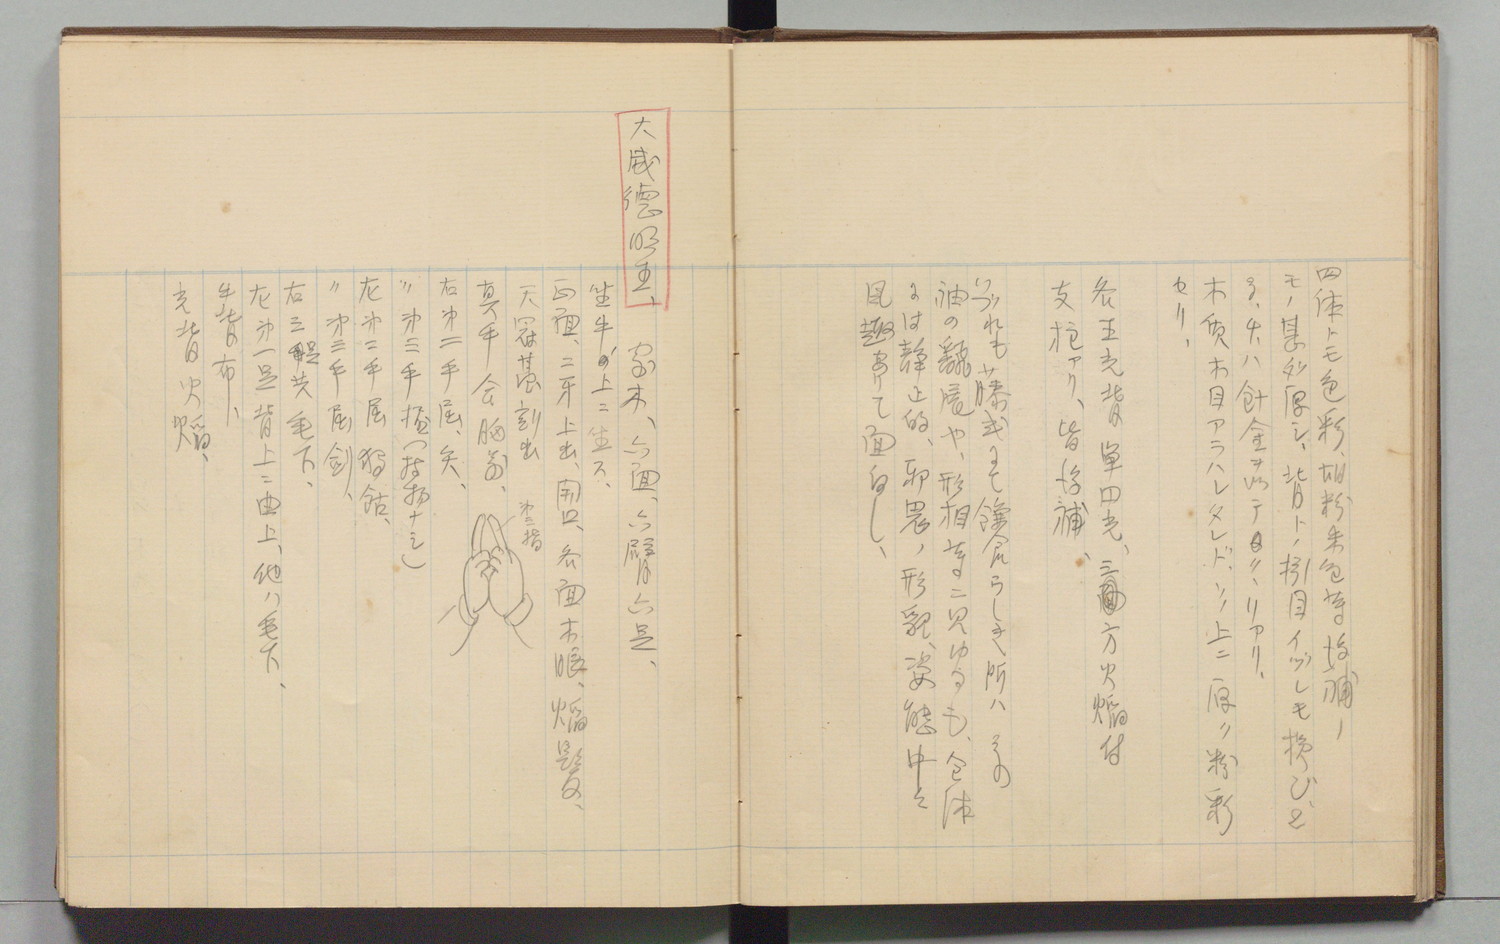 四体トモ色彩、胡粉朱色等後補ノ
モノ甚ダ厚シ、背トノ引目イヅレモ損び
大ハ針金ヲ以テクリアリ、
木質木目アラハレタレド、ソノ上ニ厚ク粉彩
セリ、
各王光背単円光、三面方火焔付
支柱アリ、皆後補、
いづれも藤式を らしき所ハその
袖の飜 や、形相等ニ見ゆるも、全体
には静止的、邪畏ノ形貌、姿態中々
見趣ありて面白し、
大威徳明王、
寄木、六面、六臂六足、
坐牛ノ上ニ坐ス、
正面、二牙上出、開口、各面木眼、焔髪、
天冠基刻出
真手会胸前、
第三指
右第二手屈、矢、
〃第三手 (持物ナシ)
左第二手屈 独鈷、
〃第三手屈剣、
右三足共垂下、
左第一足背上ニ曲上、他ハ垂下、
牛背布、
光背火焔、